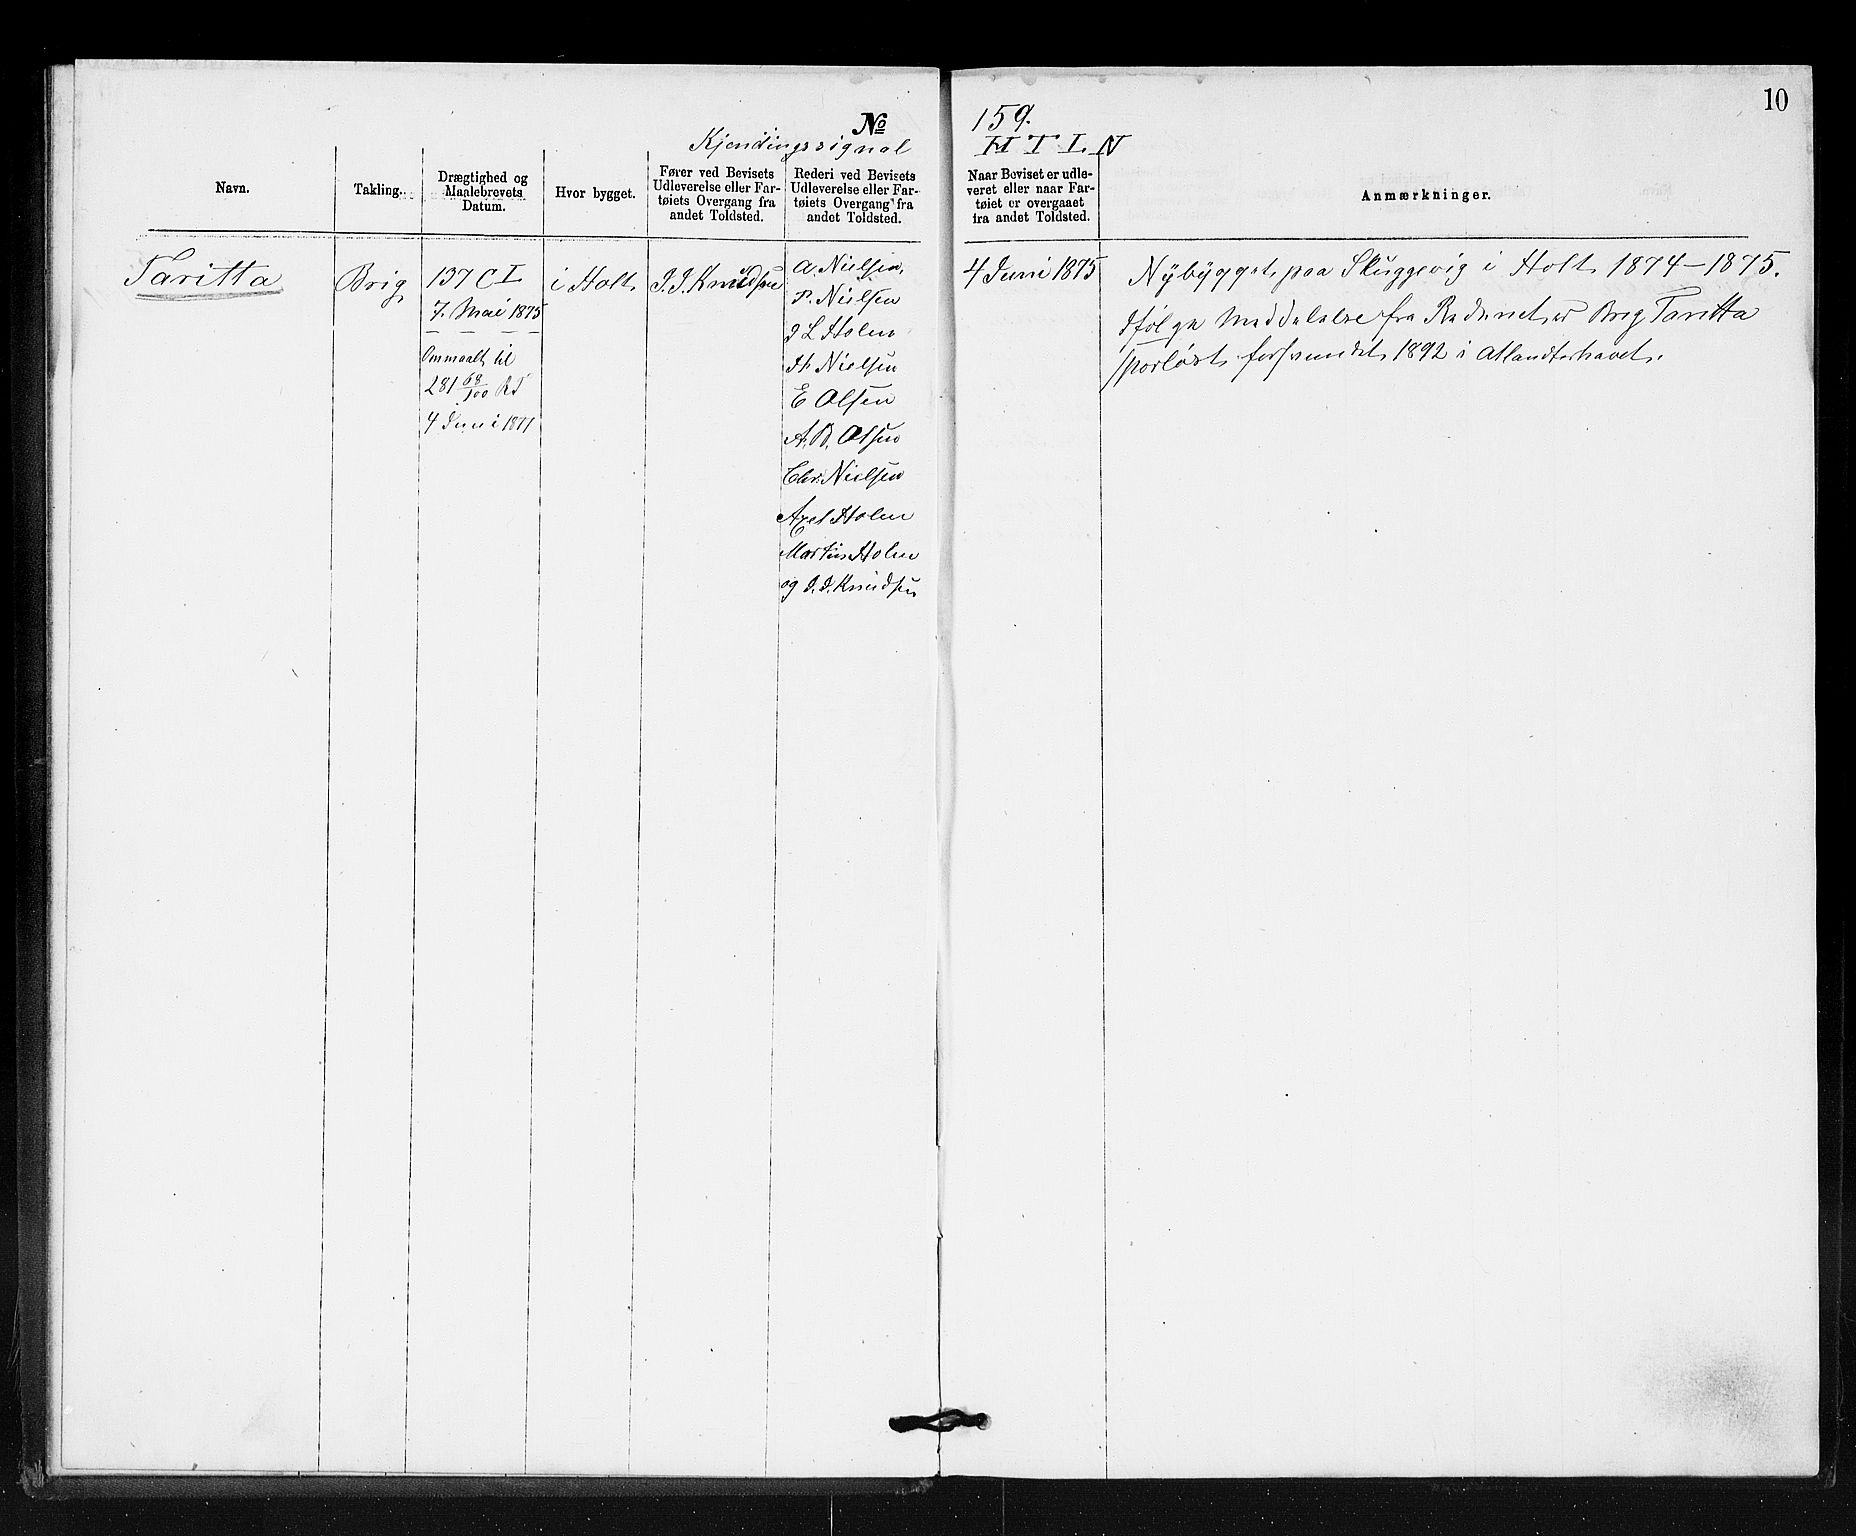 10
№ 159.
Kjendingssignal H T L N
Navn.
Takling.
Drægtighed og
Maalebrevets
Datum.
Hvor bygget.
Fører ved Bevisets
Udleverelse eller Far-
tøiets Overgang fra
andet Toldsted.
Rederi ved Bevisets
Udleverelse eller Far-
tøiets Overgang fra
andet Toldsted.
Naar Beviset er udle-
veret eller naar Far-
tøiet er overgaaet
fra andet Toldsted.
Anmærkninger.
Taritta
Brig
137 C L
7. Mai 1875
Ommaalt til
281 68/100 RT
4 Juni 1877
i Holt
J. J. Knudsen
A. Nielsen,
P. Nielsen
J L Holm
H. Nielsen
E Olsen
A. B. Olsen
Chr. Nielsen
Axel Holm
Martin Holm
og J. J. Knudsen
4 Juni 1875
Nybygget paa Skuggevig i Holt 1874-1875.
Ifølge Meddelelse fra Rederiet er Brig Taritta
sporløst forsvundet 1892 i Atlandterhavet.